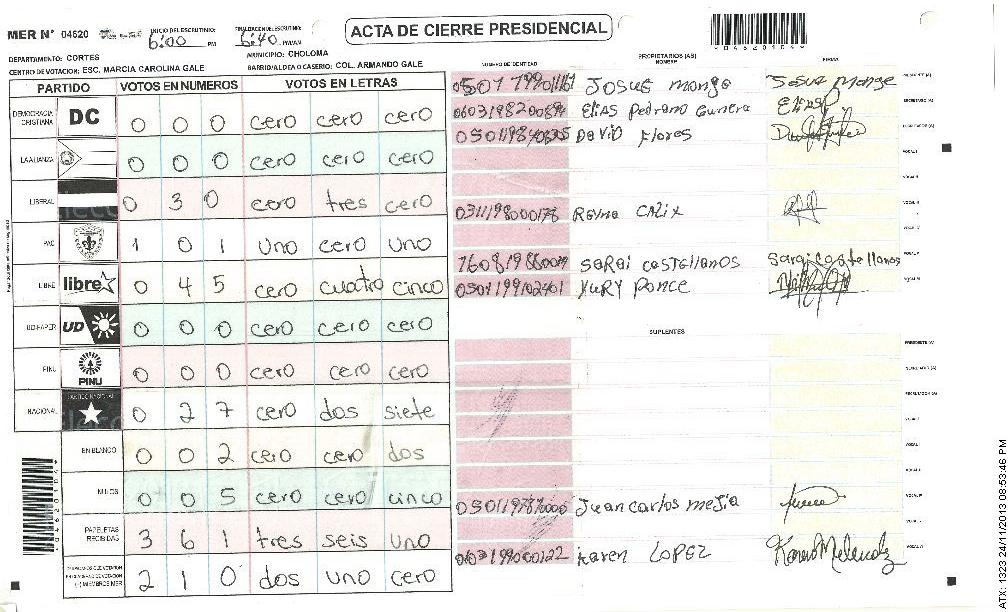 MER N° 04620
INICIO DEL ESCRUTINIO: 6:00 PM
FINALIZACION DEL ESCRUTINIO: 6:40 PM/AM
ACTA DE CIERRE PRESIDENCIAL
DEPARTAMENTO: CORTES
MUNICIPIO: CHOLOMA
CENTRO DE VOTACION: ESC. MARCIA CAROLINA GALE
BARRIO/ALDEA O CASERIO: COL. ARMANDO GALE
PARTIDO VOTOS EN NUMEROS VOTOS EN LETRAS
DEMOCRACIA CRISTIANA DC 0 0 0 cero cero cero
LA ALIANZA 0 0 0 cero cero cero
LIBERAL 0 3 0 cero tres cero
PAC 1 0 1 uno cero uno
LIBRE libre 0 4 5 cero cuatro cinco
UD-FAPER UD 0 0 0 cero cero cero
PINU PINU 0 0 0 cero cero cero
NACIONAL PARTIDO NACIONAL 0 2 7 cero dos siete
EN BLANCO 0 0 2 cero cero dos
NULOS 0 0 5 cero cero cinco
PAPELETAS RECIBIDAS 3 6 1 tres seis uno
2 1 0 dos uno cero
NUMERO DE IDENTIDAD
PROPIETARIOS (AS)
NOMBRE
FIRMA
Josue monge Josue monge
Elias Pedrano Gunera
David Flores
0311198000178 Reyna CAlix
SaRai castellanos Sarai castellanos
0501199102401 YuRY Ponce
SUPLENTES
Juan carlos mejia
Karen LOPEZ
ATX: 1323 24/11/2013 08:53:46 PM